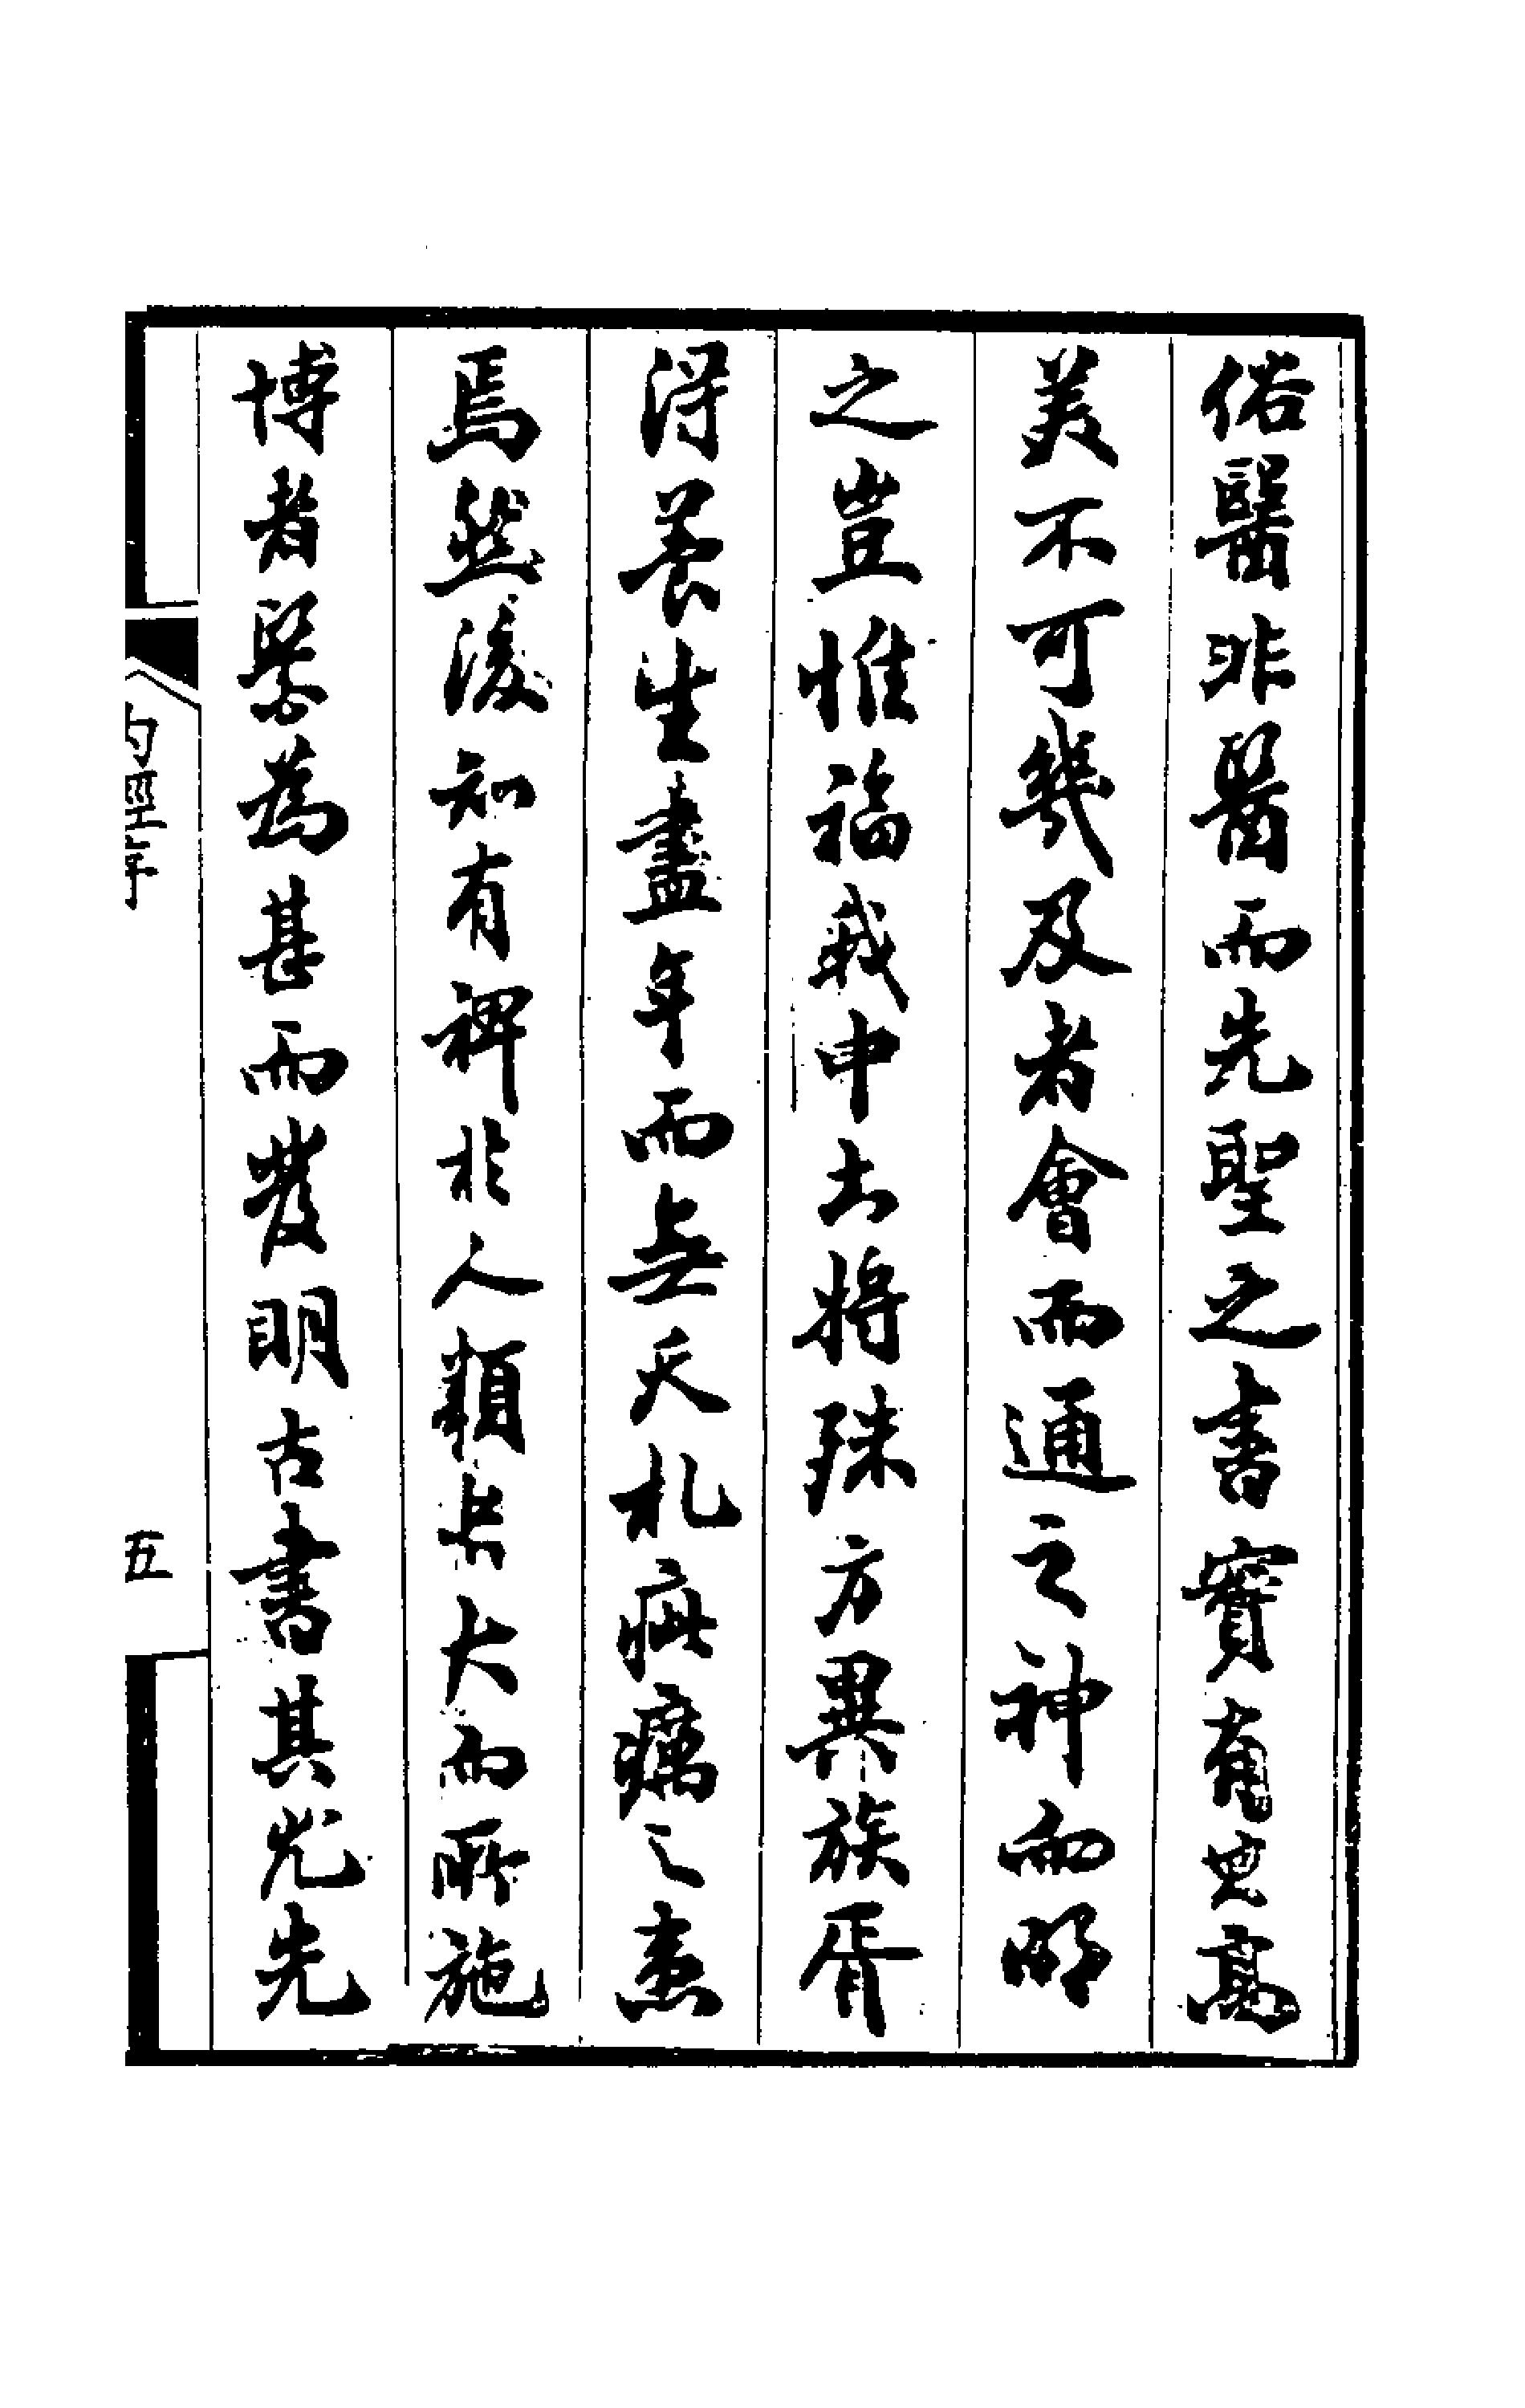 俗醫非醫而先聖之書實有高
美不可幾及者會而通之神而明
之豈惟福我中土將殊方異族胥
得養生盡年而無夭札疵癘之患
焉然後知有裨於人類大而所施
博者繄為甚而發明古書其尤先
內經序
五